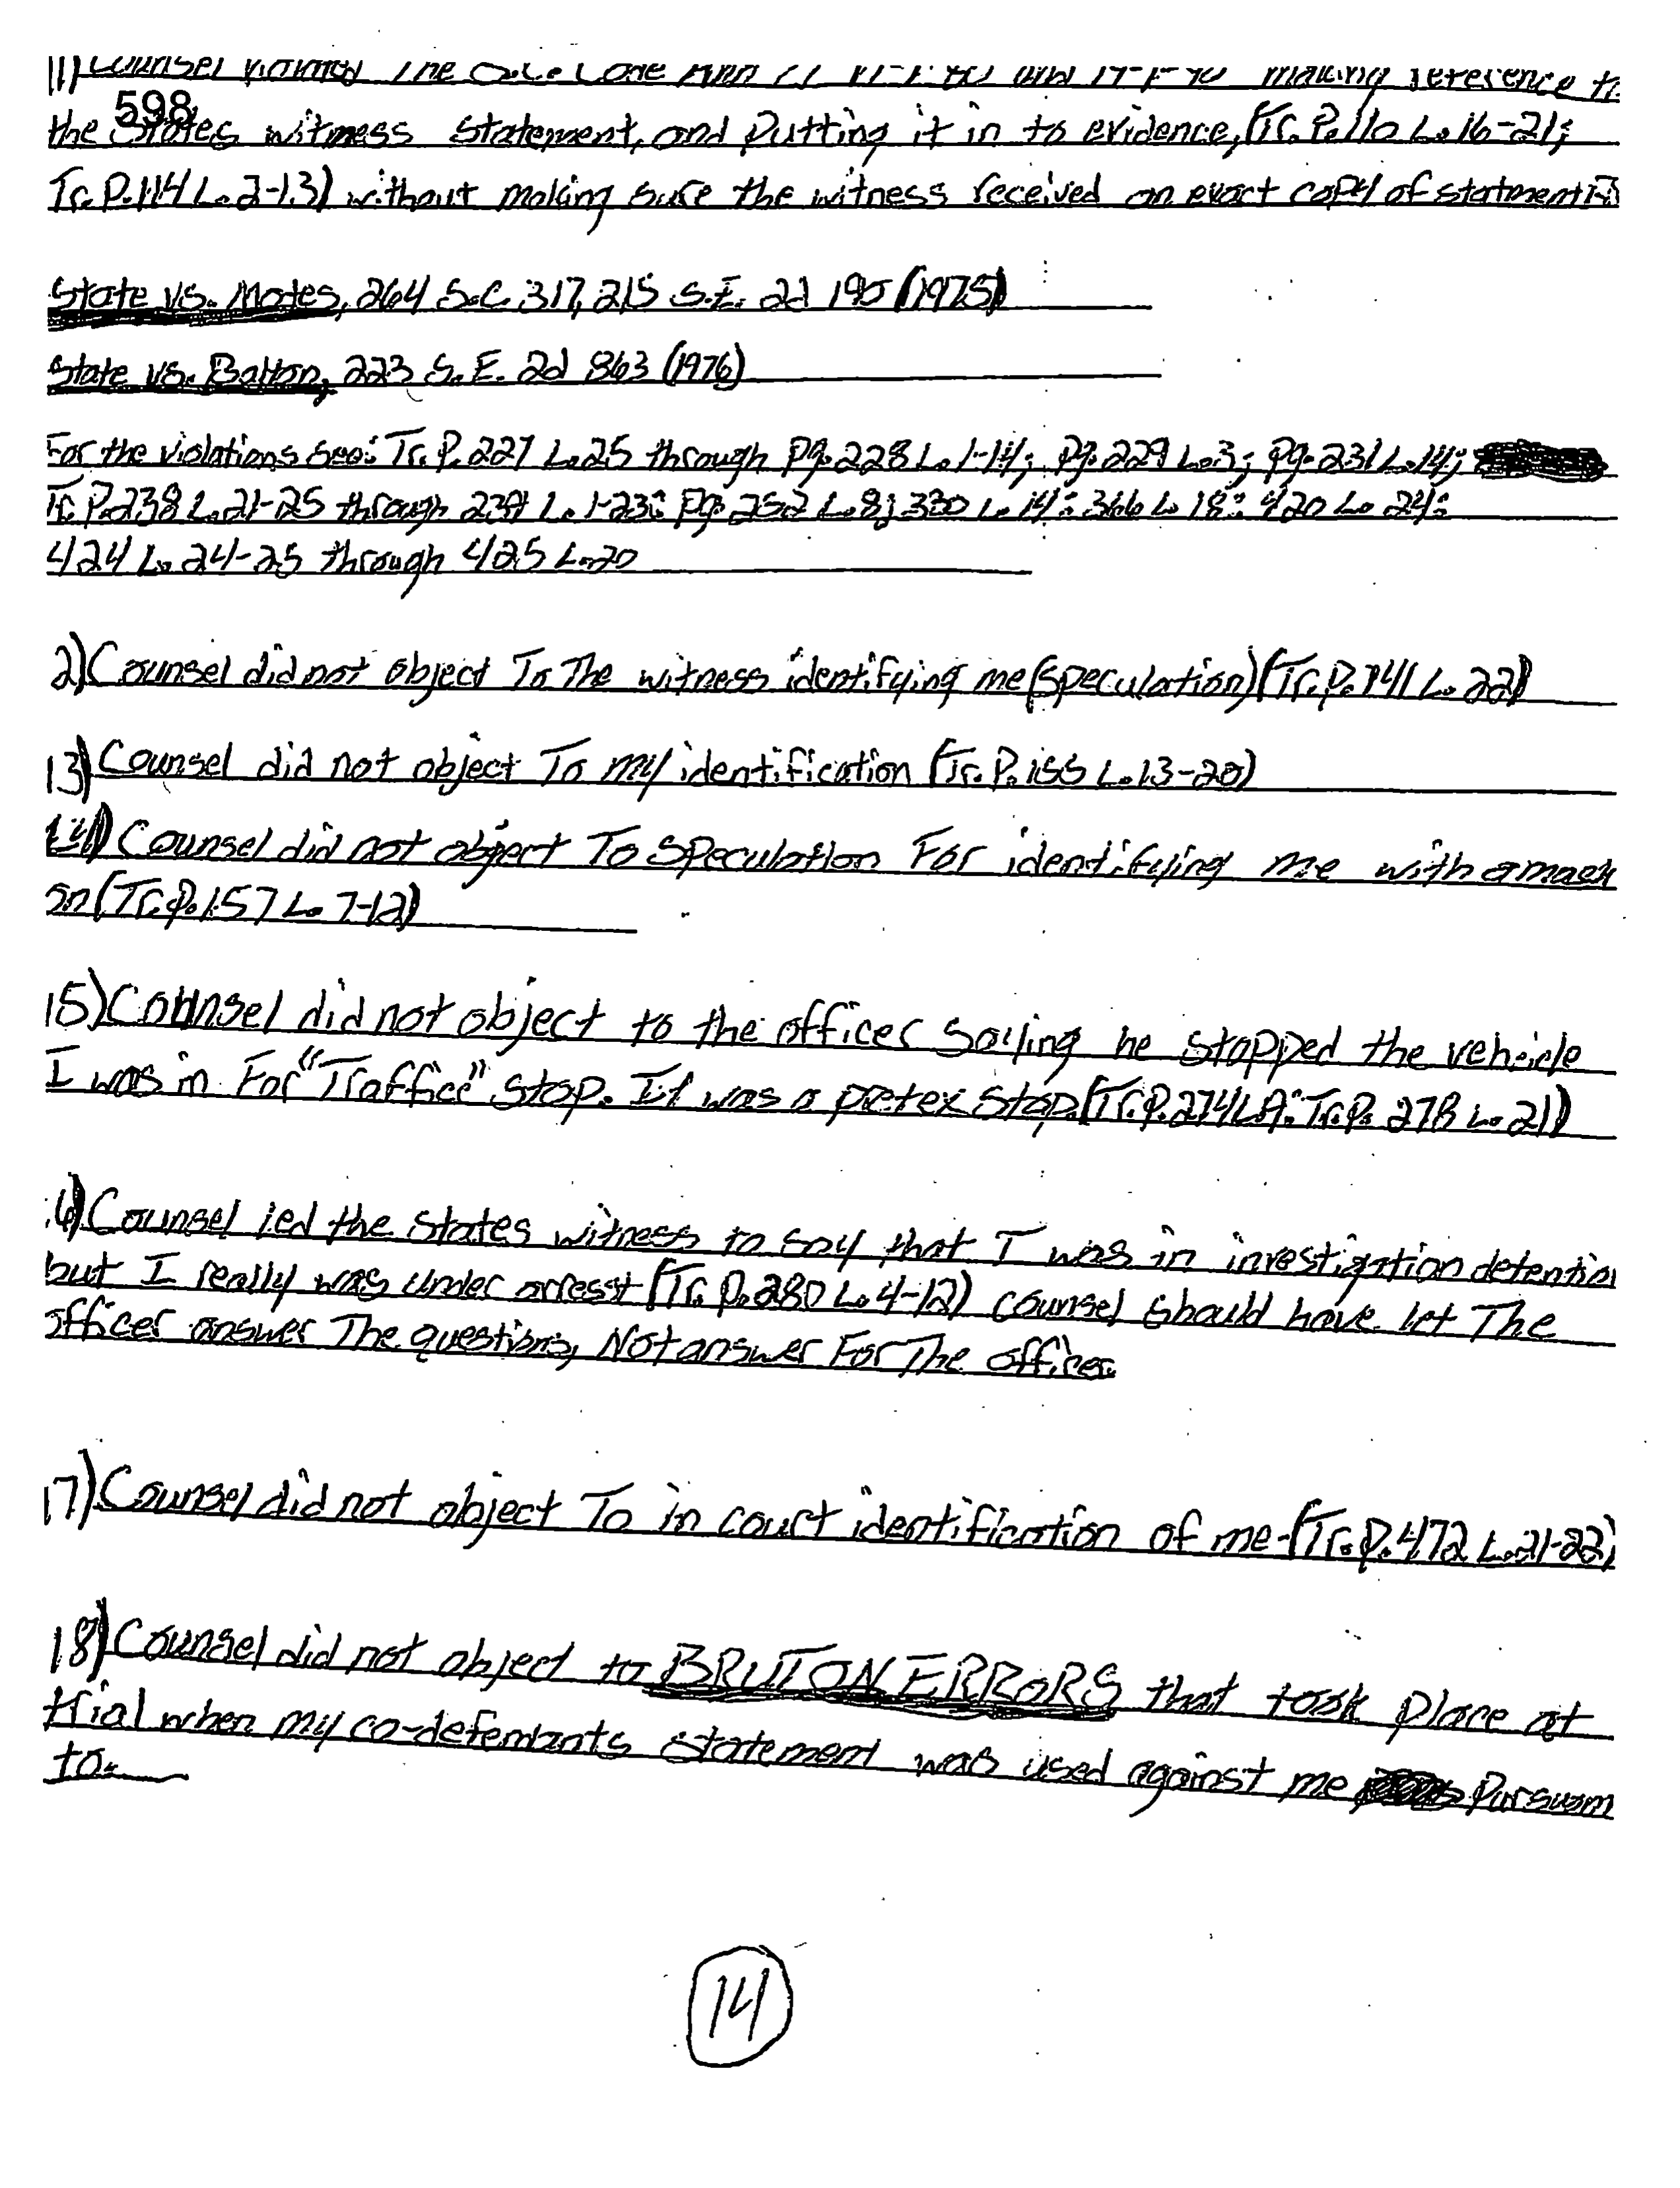 11) Counsel violated The S.C. Code Ann making reference to
598
the States witness statement, and putting it in to evidence, (Tr. P. 110 L. 16-21;
Tr. P. 114 L. 2-13) without making sure the witness received an exact copy of statement
State vs. Motes, 264 S.C. 317, 215 S.E. 2d 190 (1975)
State vs. Bolton, 223 S.E. 2d 863 (1976)
For the violations see: Tr. P. 227 L. 25 through Pg. 228 L. 1-14; Pg. 229 L. 3; Pg. 231 L. 14;
Tr. P. 238 L. 21-25 through 239 L. 1-23: Pg. 252 L. 8; 330 L. 14: 366 L. 18: 420 L. 24:
424 L. 24-25 through 425 L. 20
2) Counsel did not object To The witness identifying me (speculation) (Tr. P. 141 L. 22)
13) Counsel did not object To my identification (Tr. P. 155 L. 13-20)
14) Counsel did not object To speculation For identifying me with a mask
on (Tr. P. 157 L. 7-12)
15) Counsel did not object to the officer saying he stopped the vehicle
I was in For "Traffice" stop. It was a pretex stop. (Tr. P. 274 L. Tr. P. 278 L. 21)
16) Counsel led the States witness to say that I was in investigation detention
but I really was under arresst (Tr. P. 280 L. 4-12) counsel should have let The
officer answer The questions, Not answer For The officer.
17) Counsel did not object To in court identification of me - (Tr. P. 472 L. 21-22)
18) Counsel did not object to BRUTON ERRORS that took place at
trial when my co-defendants statement was used against me Pursuan
to:
14